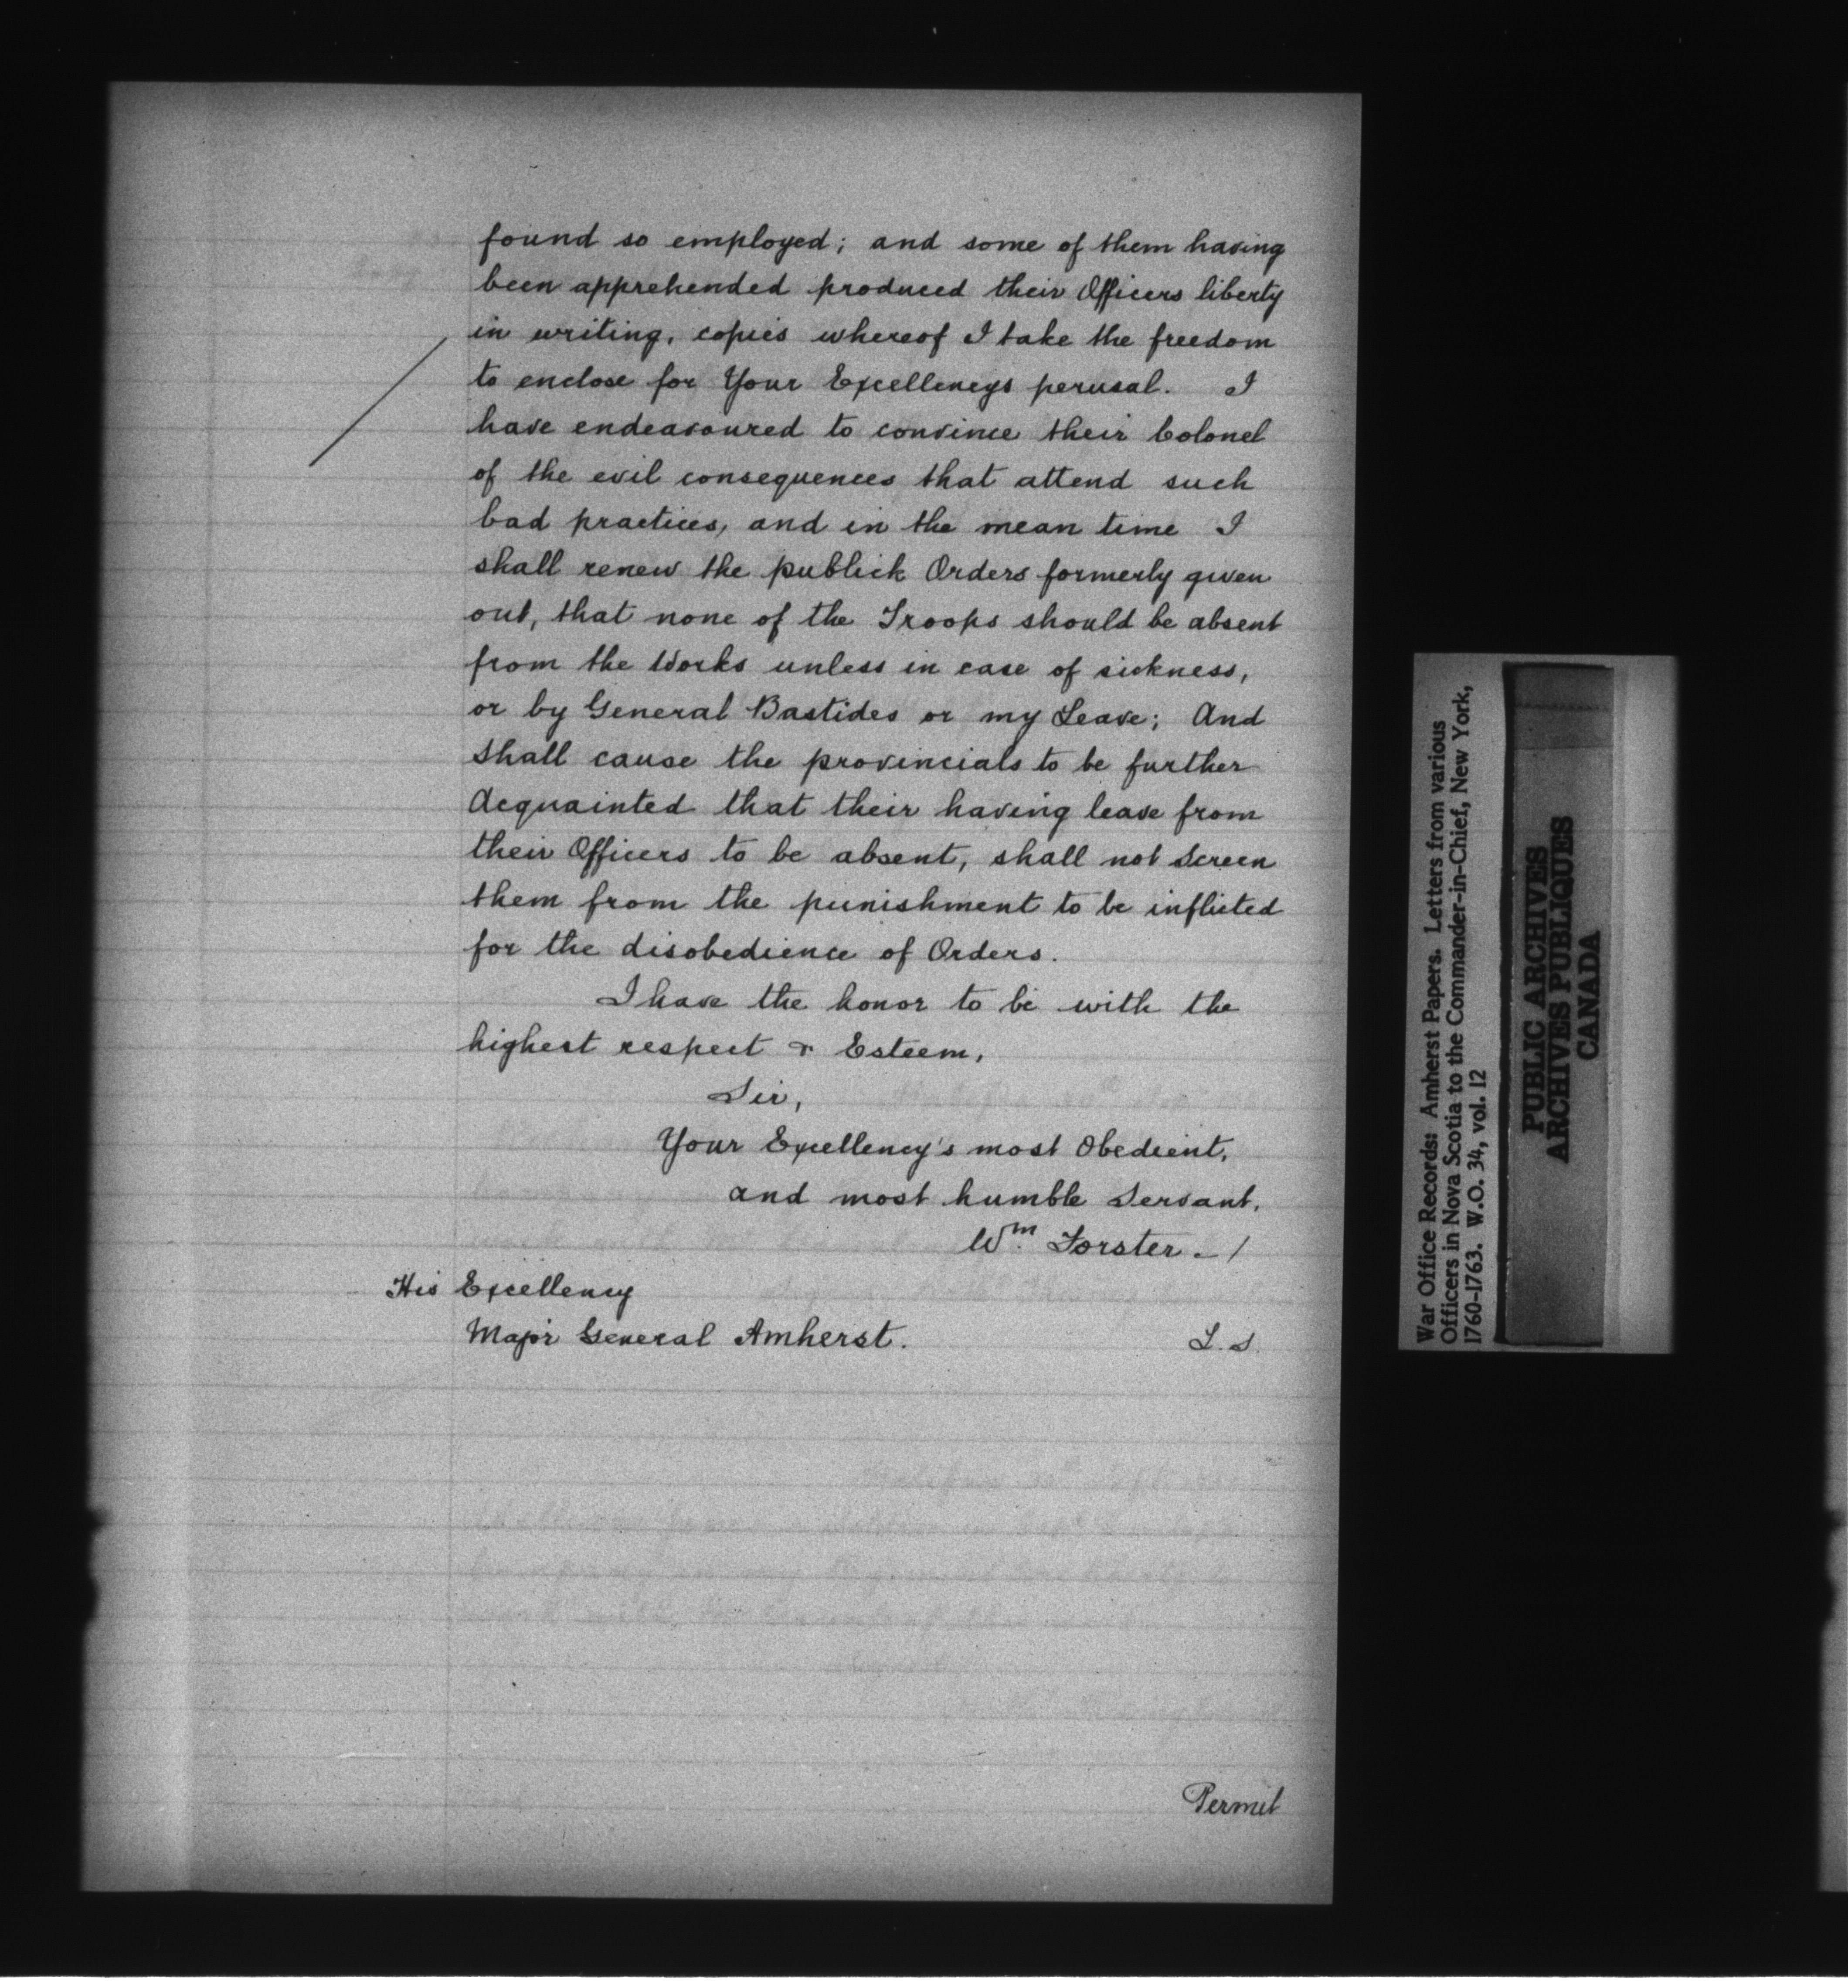 found so employed; and some of them having
been apprehended produced their Officers liberty
in writing, copies whereof I take the freedom
to enclose for Your Excellencys perusal. I
have endeavoured to convince their Colonel
of the evil consequences that attend such
bad practices, and in the mean time I
shall renew the publick Orders formerly given
out, that none of the Troops should be absent
from the Works unless in case of sickness,
or by General Bastides or my Leave; And
shall cause the provincials to be further
Acquainted that their having leave from
their Officers to be absent, shall not Screen
them from the punishment to be inflicted
for the disobedience of Orders.
I have the honor to be with the
highest respect & Esteem,
Sir,
Your Excellency's most Obedient,
and most humble Servant.
Wm. Forster - /
His Excellency
Major General Amherst.
L.S.
Permit
War Office Records: Amherst Papers. Letters from various
Officers in Nova Scotia to the Commander-in-Chief, New York,
1760-1763. W.O. 34, vol. 12
PUBLIC ARCHIVES
ARCHIVES PUBLIQUES
CANADA